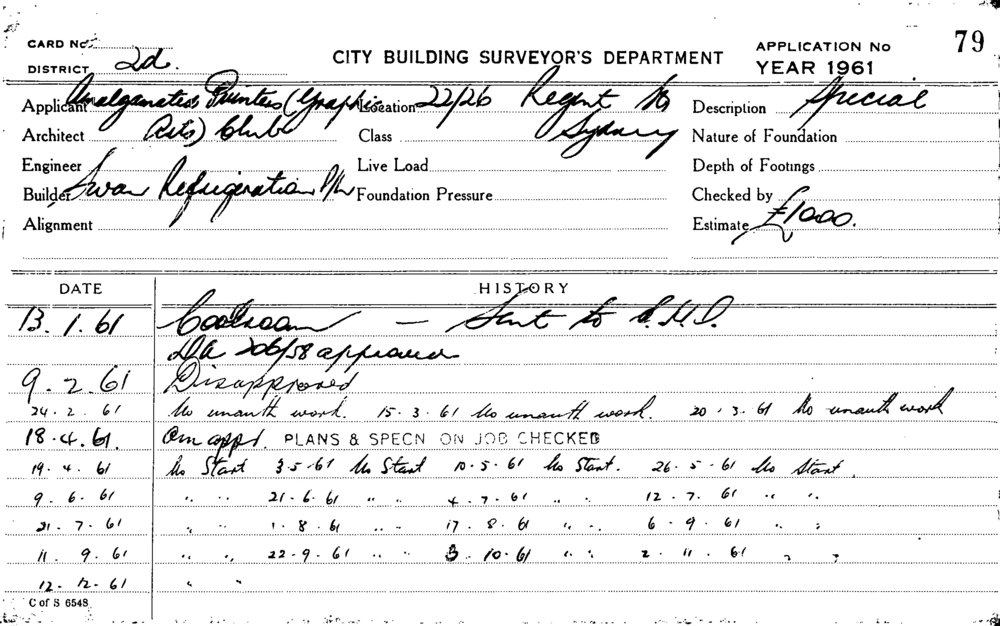 CARD No.
CITY BUILDING SURVEYOR'S DEPARTMENT
APPLICATION No 79
DISTRICT 2d.
YEAR 1961
Applicant Amalgamated Printers (Graphic Location 22/26 Regent St Description Special
Architect Arts) Club Class Sydney Nature of Foundation
Engineer Live Load Depth of Footings
Builder Swan Refrigeration P/L Foundation Pressure Checked by
Alignment Estimate £1000.
DATE HISTORY
13.1.61 Coolroom — Sent to
DA 206/58 approved
9.2.61 Disapproved
24.2.61 No unauth work. 15.3.61 No unauth work. 20.3.61 No unauth work
18.4.61. Am appd. PLANS & SPECN ON JOB CHECKED
19.4.61 No Start 3.5.61 No Start 10.5.61 No Start. 26.5.61 No Start.
9.6.61 " " 21.6.61 " " 4.7.61 " " 12.7.61 " "
21.7.61 " " 1.8.61 " " 17.8.61 " " 6.9.61 " "
11.9.61 " " 22.9.61 " " 3.10.61 " " 2.11.61 " "
12.12.61 " "
C of S 6548